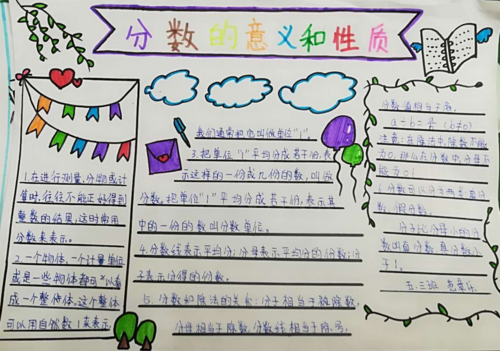 分数的意义和性质
1.在进行测量,分物或计
算时,往往不能正好得到
整数的结果,这时常用
分数来表示。
2.一个物体,一个计量单位
或是一些物体都可以看
成一个整体,这个整体
可以用自然数1来表示
我们通常把它叫做单位"1"。
3.把单位"1"平均分成若干份,表
示这样的一份或几份的数,叫做
分数,把单位"1"平均分成若干份,表示其
中的一份的数叫分数单位。
4.分数线表示平均分;分母表示平均分的份数;分
子表示分得的份数。
5.分数和除法的关系:分子相当于被除数,
分母相当于除数,分数线相当于除号,
分数值相当于商。
(b≠0)
注意:在除法中,除数不能
为0,那么在分数中,分母不
能为0!
数,假分数。
分子比分母小的分
数叫真分数,真分数小
于1。
五.三班